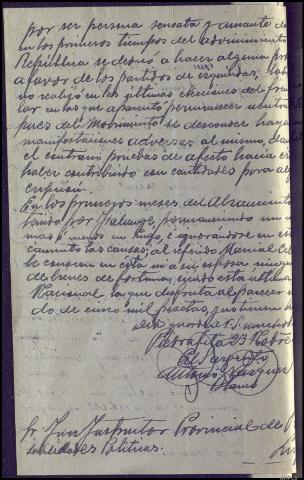 por ser persona sensata y amante de
en los primeros tiempos del advenimiento
República se dedicó a hacer alguna pro
a favor de los partidos de izquierdas,
no realizó en las últimas elecciones del fren
lar en las que aparentó permanecer neutra
pues del Movimiento se desconoce haya
manifestaciones adversas al mismo, dan
el contrario pruebas de afecto hacia es
haber contribuido con cantidades para al
cripción.
En los primeros meses del Alzamiento
tenido por Falange, permaneciendo un
mas o menos en Lugo, e ignorándose en es
camente las causas; al referido Manuel
le conocen en esta ni a su esposa ningun
de bienes de fortuna, siendo esta última
Nacional la que disfruta al parecer
do de cinco mil pesetas, que tienen
Dios guarde a V.S. muchos
Piedrafita 23 Octubre
El Sargento
Vazquez
Sr. Juez Instructor Provincial de
sabilidades Políticas.